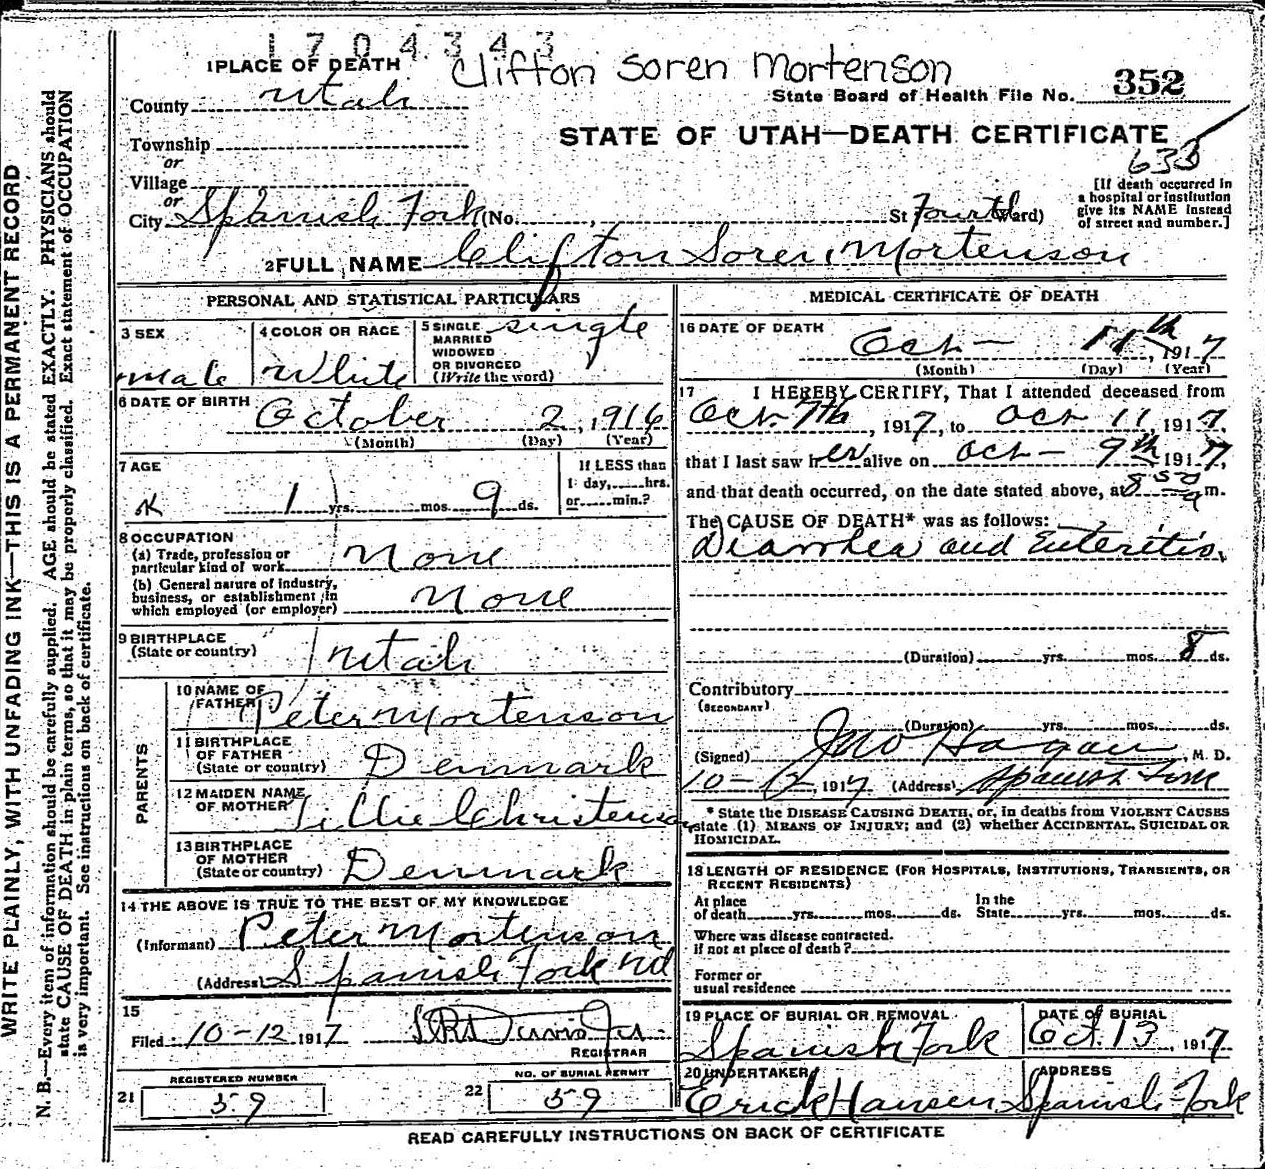 1704343
1 PLACE OF DEATH Clifton Soren Mortenson
County Utah State Board of Health File No. 352
Township STATE OF UTAH—DEATH CERTIFICATE
or
Village
or
[If death occurred in a hospital or institution give its NAME instead of street and number.]
City Spanish Fork (No. , St Fourth Ward)
2 FULL NAME Clifton Soren Mortenson
PERSONAL AND STATISTICAL PARTICULARS
3 SEX
male
4 COLOR OR RACE
White
5 SINGLE
MARRIED
WIDOWED
OR DIVORCED
(Write the word)
single
6 DATE OF BIRTH
October 2, 1916
(Month) (Day) (Year)
7 AGE
1 yrs. mos. 9 ds.
If LESS than
1 day, hrs.
or min.?
8 OCCUPATION
(a) Trade, profession or
particular kind of work None
(b) General nature of industry,
business, or establishment in
which employed (or employer) None
9 BIRTHPLACE
(State or country) Utah
PARENTS
10 NAME OF
FATHER Peter Mortenson
11 BIRTHPLACE
OF FATHER
(State or country) Denmark
12 MAIDEN NAME
OF MOTHER Tillie Christenson
13 BIRTHPLACE
OF MOTHER
(State or country) Denmark
14 THE ABOVE IS TRUE TO THE BEST OF MY KNOWLEDGE
(Informant) Peter Mortenson
(Address) Spanish Fork
15
Filed 10-12 1917
REGISTRAR
REGISTERED NUMBER
21 59
NO. OF BURIAL PERMIT
22 59
MEDICAL CERTIFICATE OF DEATH
16 DATE OF DEATH
Oct- 11th, 1917
(Month) (Day) (Year)
17 I HEREBY CERTIFY, That I attended deceased from
Oct. 7th, 1917, to Oct 11, 1917,
that I last saw her alive on Oct- 9th 1917,
and that death occurred, on the date stated above, at 8 50 a m.
The CAUSE OF DEATH* was as follows:
Diarrhea and Enteritis,
(Duration) yrs. mos. 8 ds.
Contributory
(SECONDARY)
(Duration) yrs. mos. ds.
(Signed) Jno Hagan, M. D.
10-12, 1917 (Address) Spanish Fork
* State the DISEASE CAUSING DEATH, or, in deaths from VIOLENT CAUSES
state (1) MEANS OF INJURY; and (2) whether ACCIDENTAL, SUICIDAL OR
HOMICIDAL.
18 LENGTH OF RESIDENCE (FOR HOSPITALS, INSTITUTIONS, TRANSIENTS, OR
RECENT RESIDENTS)
At place
of death yrs. mos. ds. In the
State yrs. mos. ds.
Where was disease contracted.
if not at place of death?
Former or
usual residence
19 PLACE OF BURIAL OR REMOVAL
Spanish Fork
DATE OF BURIAL
Oct. 13, 1917
20 UNDERTAKER
Erick Hansen
ADDRESS
Spanish Fork
READ CAREFULLY INSTRUCTIONS ON BACK OF CERTIFICATE
WRITE PLAINLY, WITH UNFADING INK—THIS IS A PERMANENT RECORD
N. B.—Every item of information should be carefully supplied. AGE should be stated EXACTLY. PHYSICIANS should
state CAUSE OF DEATH in plain terms, so that it may be properly classified. Exact statement of OCCUPATION
is very important. See instructions on back of certificate.